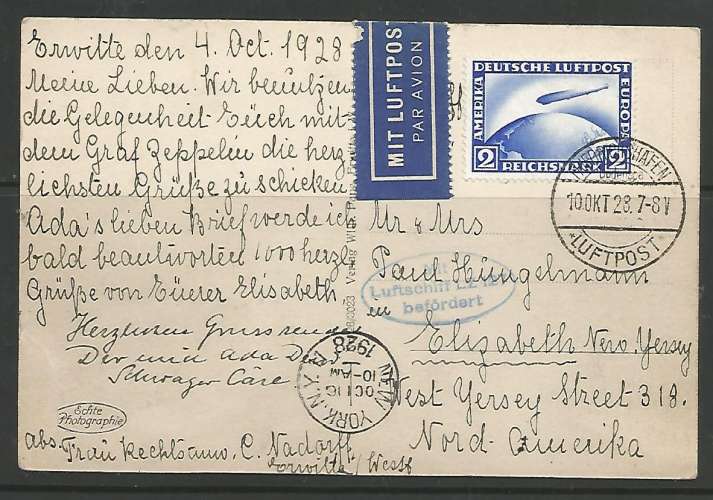 Erwitte den 4. Oct. 1928
Meine Lieben. Wir benützen
die Gelegenheit Euch mit
dem Graf Zeppelin die herz
lichsten Grüße zu schicken.
Ada's lieben Brief werde ich
bald beantworten 1000 herzl.
Grüße von Euerer Elisabeth
Herzlichen Gruss
Schwager
Echte
Photographie
abs. Frau C. Nadorff
Erwitte/Westf
MIT LUFTPOST
PAR AVION
DEUTSCHE LUFTPOST
AMERIKA
EUROPA
2 REICHSMARK 2
FRIEDRICHSHAFEN
10 OKT 28. 7-8V
*LUFTPOST*
Mit
Luftschiff LZ 127
befördert
Mr & Mrs
Paul Hüngelmann
en
Elizabeth New. Yersey
West Yersey Street 318.
Nord-Amerika
NEW YORK, N.Y.
OCT 16
10 AM
1928